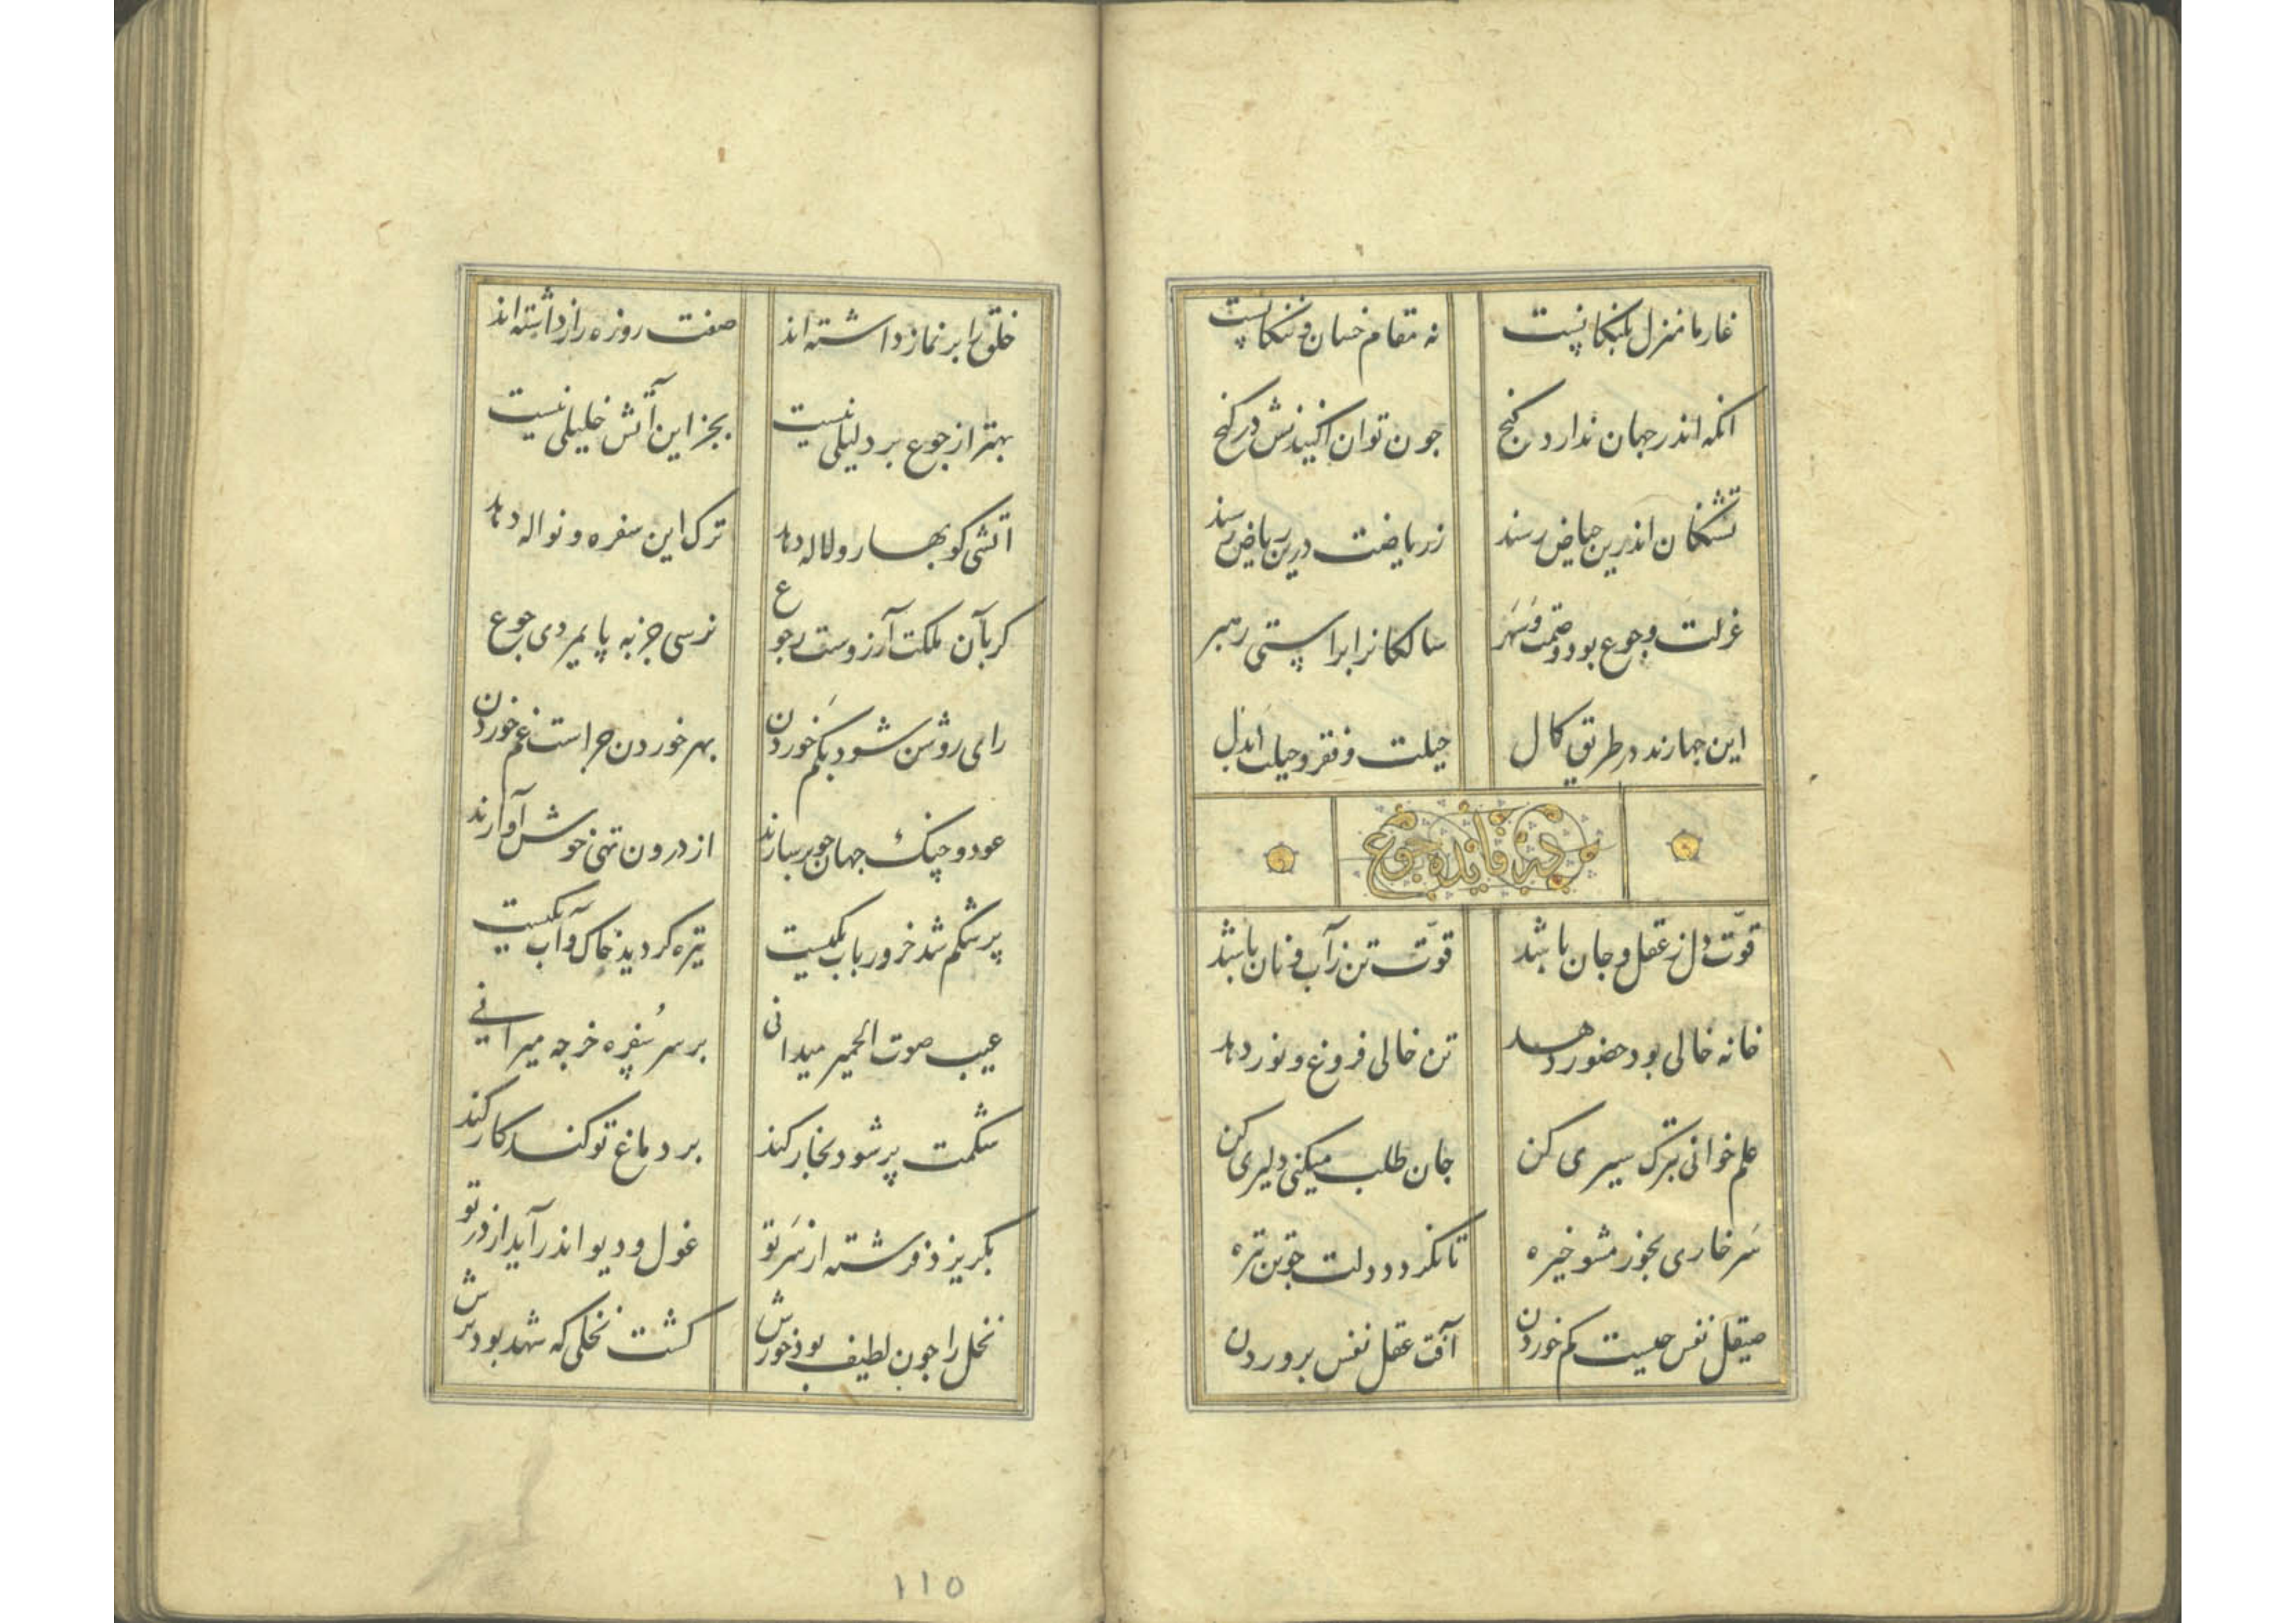 غار ما منزل پلنگانیست نه مقام خسان و ننگانیست
انکه اندر جهان ندارد کنج جون توان اکنیدنش در کنج
تشنکان اندرین حیاض رسند ز ریاضت درین ریاض رسند
عزلت و جوع بود و صمت و سهر سالکانرا براستی رهبر
این جهارند در طریق کمال حیلت و فقر و حیلت ابدال
در فایده جوع
قوّت دل ز عقل و جان باشد قوّت تن ز آب و نان باشد
خانه خالی بود حضور دهد تن خالی فروغ و نور دهد
علم خوانی بترک سیری کن جان طلب میکنی دلیری کن
سر خاری بخور مشو خیره تا نکردد دلت جو تن تیره
صیقل نفس جیست کم خوردن آفت عقل نفس پروردن
خلق را بر نماز داشته اند صفت روزه راز داشته اند
بهتر از جوع بر دلیلی نیست بجز این آتش خلیلی نیست
اتشی کو بهار و لاله دهد ترک این سفره و نواله دهد
کر بآن ملکت آرزوست رجوع نرسی جز به پایمردی جوع
رای روشن شود بکم خوردن بهر خوردن جراست غم خوردن
عود و چنک جهان جو برسازند از درون تهی خوش آوازند
پر شکم شد خر و رباب یکیست تیره کردید خاک و آب یکیست
عیب صوت الحمیر میدانی بر سر سفره خر جه میرانی
شکمت پر شود بخار کند بر دماغ تو کند کار کند
بکریزد فرشته از سر تو غول و دیو اندر آید از در تو
نخل را جون لطیف بود خورش کشت نخلی که شهد بود برش
۱۱۵